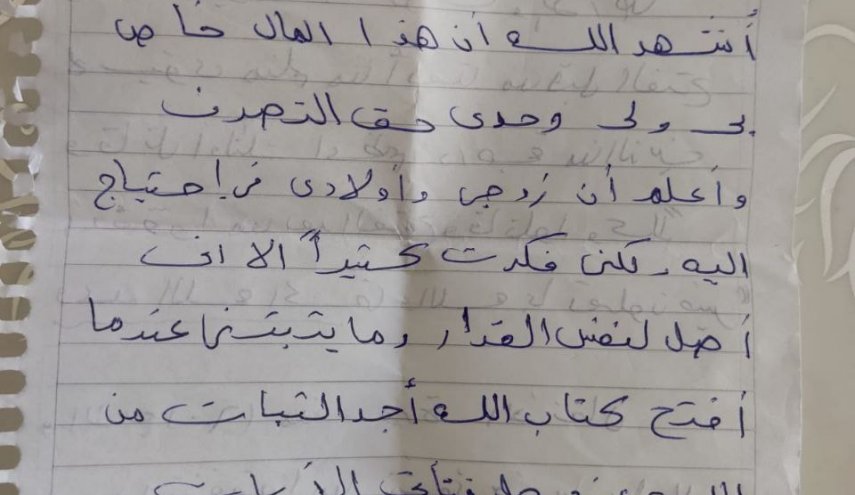 أشهد الله أن هذا المال خاص
بى ولى وحدى حق التصرف
وأعلم أن زوجى وأولادى فى إحتياج
اليه ولكنى فكرت كثيراً الا انى
أصل لنفس القرار وما يثبتنى عندما
أفتح كتاب الله أجد الثبات من